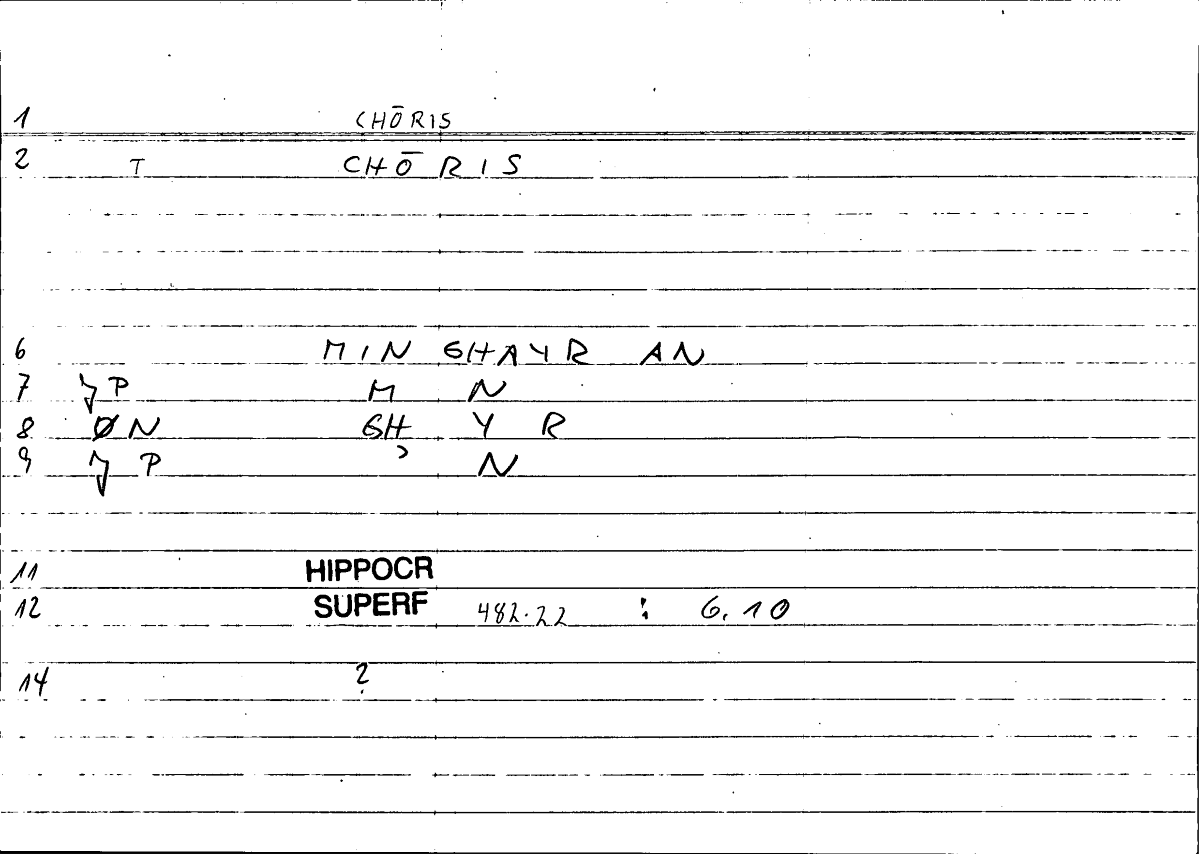 1 CHŌRIS
2 T CHŌ R I S
6 MIN GHAYR AN
7 P M N
8 ØN GH Y R
9 P ʾ N
11 HIPPOCR
12 SUPERF 482.22 : 6.10
14 ?